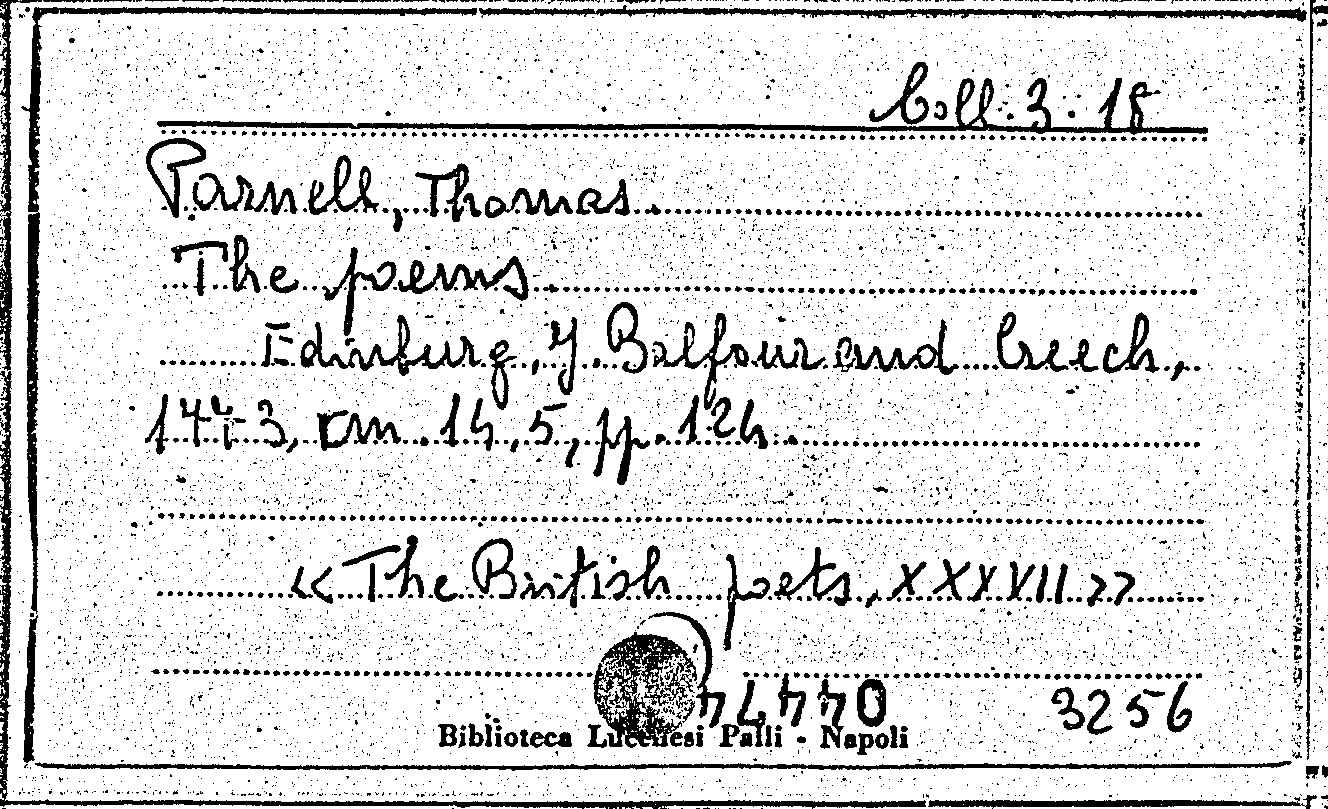 Coll. 3. 18
Parnell, Thomas.
The poems.
Edinburg, J. Balfour and Creech,
1773, cm. 14,5, pp. 124.
«The British poets, XXXVII»
3256
Biblioteca Lucchesi Palli - Napoli